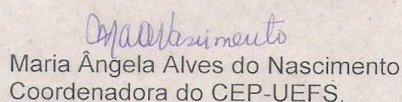 Maria Ângela Alves do Nascimento
Coordenadora do CEP-UEFS.